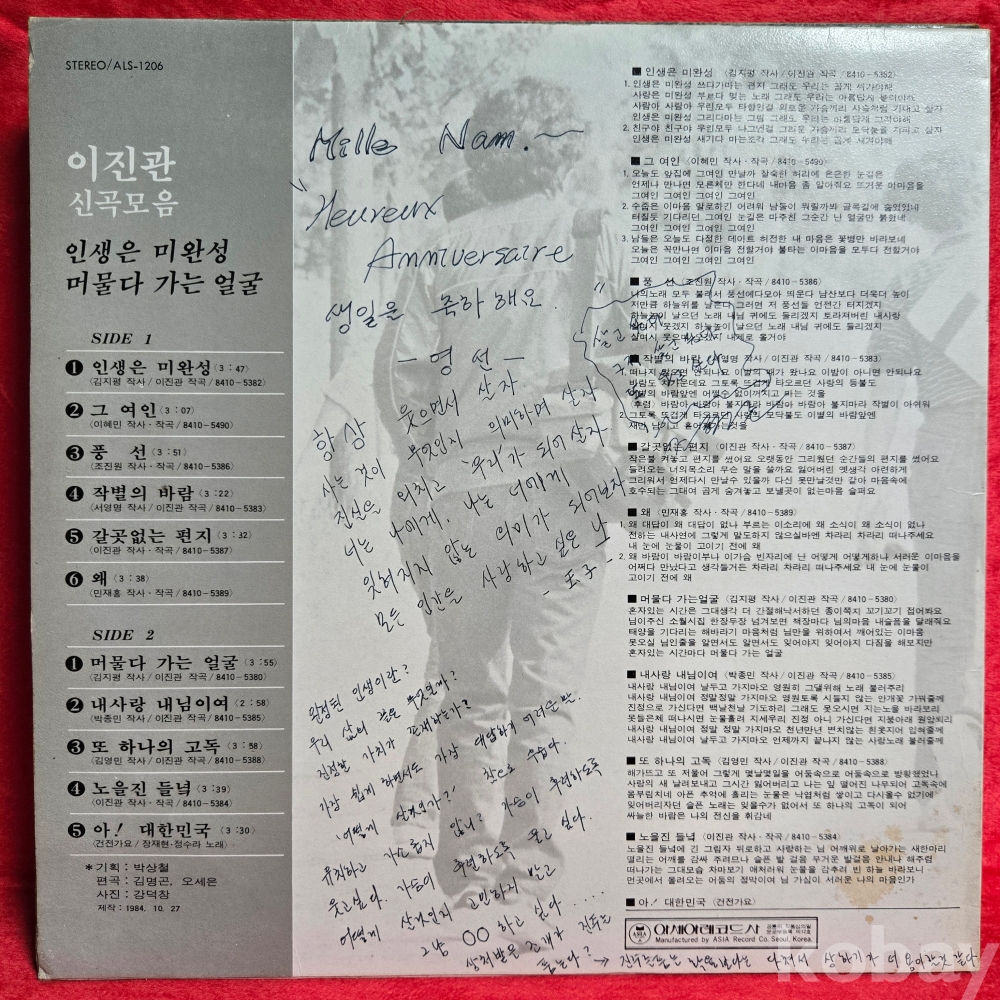 STEREO/ALS-1206
이진관
신곡모음
인생은 미완성
머물다 가는 얼굴
SIDE 1
❶ 인생은 미완성 (3:47)
(김지평 작사/이진관 작곡/8410-5382)
❷ 그 여인 (3:07)
(이혜민 작사·작곡/8410-5490)
❸ 풍 선 (3:51)
(조진원 작사·작곡/8410-5386)
❹ 작별의 바람 (3:22)
(서영명 작사/이진관 작곡/8410-5383)
❺ 갈곳없는 편지 (3:32)
(이진관 작사·작곡/8410-5387)
❻ 왜 (3:38)
(민재홍 작사·작곡/8410-5389)
SIDE 2
❶ 머물다 가는 얼굴 (3:55)
(김지평 작사/이진관 작곡/8410-5380)
❷ 내사랑 내님이여 (2:58)
(박종민 작사/이진관 작곡/8410-5385)
❸ 또 하나의 고독 (3:58)
(김영민 작사/이진관 작곡/8410-5388)
❹ 노을진 들녘 (3:39)
(이진관 작사·작곡/8410-5384)
❺ 아! 대한민국 (3:30)
(건전가요/장재현·정수라 노래)
*기획: 박상철
편곡: 김명곤, 오세은
사진: 강덕창
제작: 1984. 10. 27
Mille Nam.~
"Heureux
Anniversaire
생일을 축하해요"
-영선-
항상 웃으면서 살자
사는 것이 무엇인지 의미하며 살자
진실을 외치고 '우리'가 되어 살자
너는 나에게, 나는 너에게
잊혀지지 않는 의미가 되어보자
모든 인간을 사랑하고 싶은 나
-王子-
완성된 인생이란?
우리 삶의 같은 무엇일까?
진정한 가치가 존재하는가?
가장 쉽게 하면서도 가장 대답하기 어려운 말.
'어떻게 살것인가?' 참으로 우습다.
유치하고 가소롭지 않니? 가슴이 후련하도록
웃고싶다. 가슴이 후련하도록 울고 싶다.
어떻게 살것인지 고민하지 말고
그냥 OO 하고 싶다....
상처받은 조개가 진주를
품는다? →
■ 인생은 미완성 (김지평 작사/이진관 작곡/8410-5382)
1. 인생은 미완성 쓰다가마는 편지 그래도 우리는 곱게 써가야해
사랑은 미완성 부르다 멎는 노래 그래도 우리는 아름답게 불러야해
사람아 사람아 우린모두 타향인걸 외로운 가슴끼리 사슴처럼 기대고 살자
인생은 미완성 그리다마는 그림 그래도 우리는 아름답게 그려야해
2. 친구야 친구야 우린모두 나그넨걸 그리운 가슴끼리 모닥불을 지피고 살자
인생은 미완성 새기다 마는조각 그래도 우리는 곱게 새겨야해
■ 그 여인 (이혜민 작사·작곡/8410-5490)
1. 오늘도 앞집에 그여인 만날까 잘숙한 허리에 은은한 눈길은
언제나 만나면 모른체만 한다네 내마음 좀 알아줘요 뜨거운 이마음을
그여인 그여인 그여인 그여인
2. 수줍은 이마음 말로하긴 어려워 남들이 뭐랄까봐 골목길에 숨었었네
터질듯 기다리던 그여인 눈길은 마주친 그순간 난 얼굴만 붉혔네
그여인 그여인 그여인 그여인
3. 남들은 오늘도 다정한 데아트 허전한 내 마음은 꽃병만 바라보네
오늘은 꼭만나면 이마음 전할거야 불타는 이마음을 모두다 전할거야
그여인 그여인 그여인 그여인
■ 풍 선 (조진원 작사·작곡/8410-5386)
나의노래 모두 불러서 풍선에다모아 띄운다 남산보다 더욱더 높이
저만큼 하늘위를 날은다 그러면 저 풍선들 언젠간 터지겠지
하늘높이 날으던 노래 내님 귀에도 들리겠지 토라져버린 내사랑
살며시 웃겠지 하늘높이 날으던 노래 내님 귀에도 들리겠지
살며시 웃으며 내게로 올거야
■ 작별의 바람 (서영명 작사/이진관 작곡/8410-5383)
■ 갈곳없는 편지 (이진관 작사·작곡/8410-5387)
작은불 켜놓고 편지를 썼어요 오랫동안 그리웠던 순간들의 편지를 썼어요
들려오는 너의목소리 무슨 말을 쓸까요 잃어버린 옛생각 아련하게
그리워서 언제다시 만날수 있을까 다신 못만날것만 같아 마음속에
호수되는 그대여 곱게 숨겨놓고 보낼곳이 없는마음 슬퍼요
■ 왜 (민재홍 작사·작곡/8410-5389)
1. 왜 대답이 왜 대답이 없나 부르는 이소리에 왜 소식이 왜 소식이 없나
전하는 내사연에 그렇게 말도하지 않으실바엔 차라리 차라리 떠나주세요
내 눈에 눈물이 고이기 전에 왜
2. 왜 바람이 바람이부나 이가슴 빈자리에 난 어떻게 어떻게하나 서러운 이마음을
어쩌다 만났다고 생각들거든 차라리 차라리 떠나주세요 내 눈에 눈물이
고이기 전에 왜
■ 머물다 가는얼굴 (김지평 작사/이진관 작곡/8410-5380)
혼자있는 시간은 그대생각 더 간절해낙서하던 종이쪽지 꼬기꼬기 접어봐요
님이주신 소월시집 한장두장 넘겨보면 책장마다 님의마음 내슬픔을 달래줘요
태양을 기다리는 해바라기 마음처럼 님만을 위하여서 깨어있는 이마음
못오실 님인줄을 알면서도 알면서도 잊어야지 잊어야지 다짐을 해보지만
혼자있는 시간마다 머물다 가는 얼굴
■ 내사랑 내님이여 (박종민 작사/이진관 작곡/8410-5385)
내사랑 내님이여 날두고 가지마오 영원히 그댈위해 노래 불러주리
내사랑 내님이여 정말정말 가지마오 영원토록 시들지 않는 안개꽃 가꿔줄께
진정으로 가신다면 백날천날 기도하리 그래도 못오시면 지는노을 바라보리
못들은체 떠나시면 눈물흘려 지세우리 진정 아니 가신다면 지붕아래 원앙되리
내사랑 내님이여 정말 정말 가지마오 천년만년 변치않는 흰옷지어 입혀줄께
내사랑 내님이여 날두고 가지마오 언제까지 끝나지 않는 사랑노래 불러줄께
■ 또 하나의 고독 (김영민 작사/이진관 작곡/8410-5388)
해가뜨고 또 저물어 그렇게 몇날몇일을 어둠속으로 어둠속으로 방황했었나
사랑의 새 날려보내고 그시간 잃어버리고 나는 잎 떨어진 나무되어 고독속에
몸부림치네 아픈 추억에 흘리는 눈물은 낙엽처럼 쌓이고 다시올수 없기에
잊어버리자던 슬픈 노래는 잊을수가 없어서 또 하나의 고독이 되어
싸늘한 바람은 나의 전신을 휘감네
■ 노을진 들녘 (이진관 작사·작곡/5384)
노을진 들녘에 긴 그림자 뒤로하고 사랑하는 님 어깨위로 날아가는 새한마리
떨리는 어깨를 감싸 주려므나 슬픈 발 걸음 무거운 발걸음 안내나 해주렴
떠나가는 그대모습 차마보기 애처러워 눈물을 감추려 빈 하늘 바라보니
먼곳에서 몰려오는 어둠의 정막이여 님 가심이 서러운 나의 마음인가
■ 아! 대한민국 (건전가요)
ASIA 아세아레코드사
Manufactured by ASIA Record Co. Seoul, Korea.
kobay